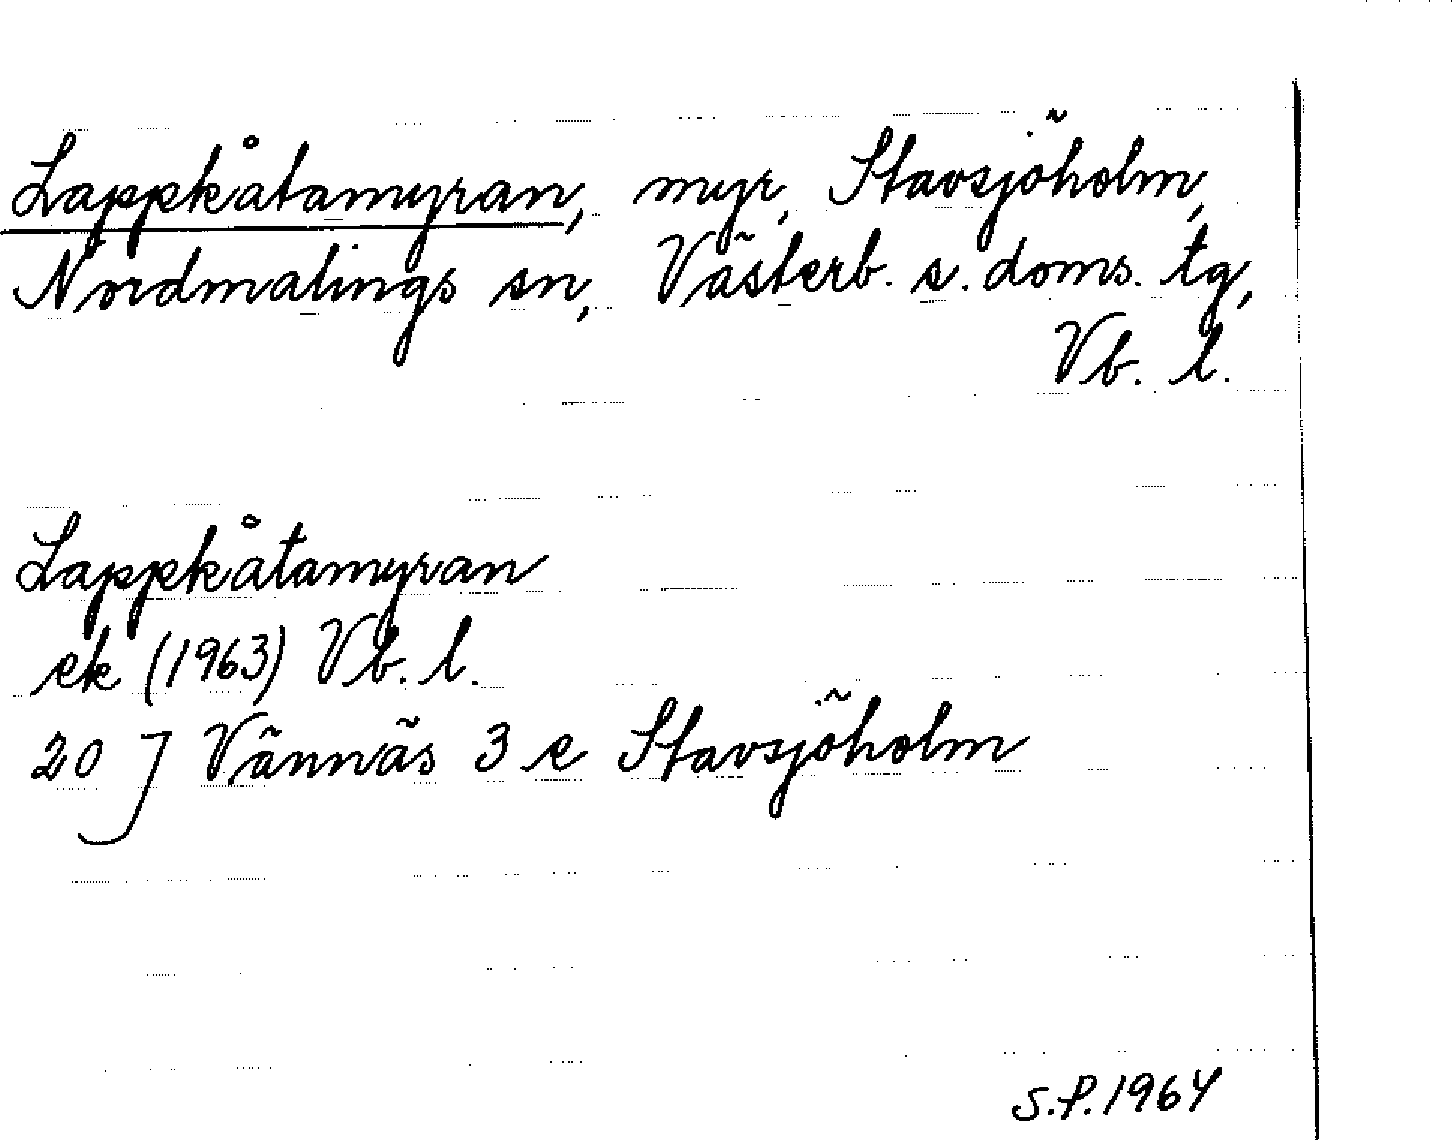 Lappkåtamyran, myr, Stavsjöholm,
Nordmalings sn, Västerb. s. doms. tg,
Vb. l.
Lappkåtamyran
ek (1963) Vb. l.
20 J Vännäs 3 e Stavsjöholm
S.P. 1964